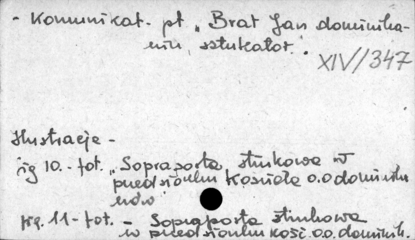 - Komunikat. pt „Brat Jan dominika-
nin, sztukator".
XIV/347
Ilustracje -
fig 10. - fot. „Sopraporta stiukowa w
przedsionku Kościoła o.o dominika
nów"
fig. 11 - fot. - Sopraporta stiukowa
w przedsionku kość. o.o. dominik.